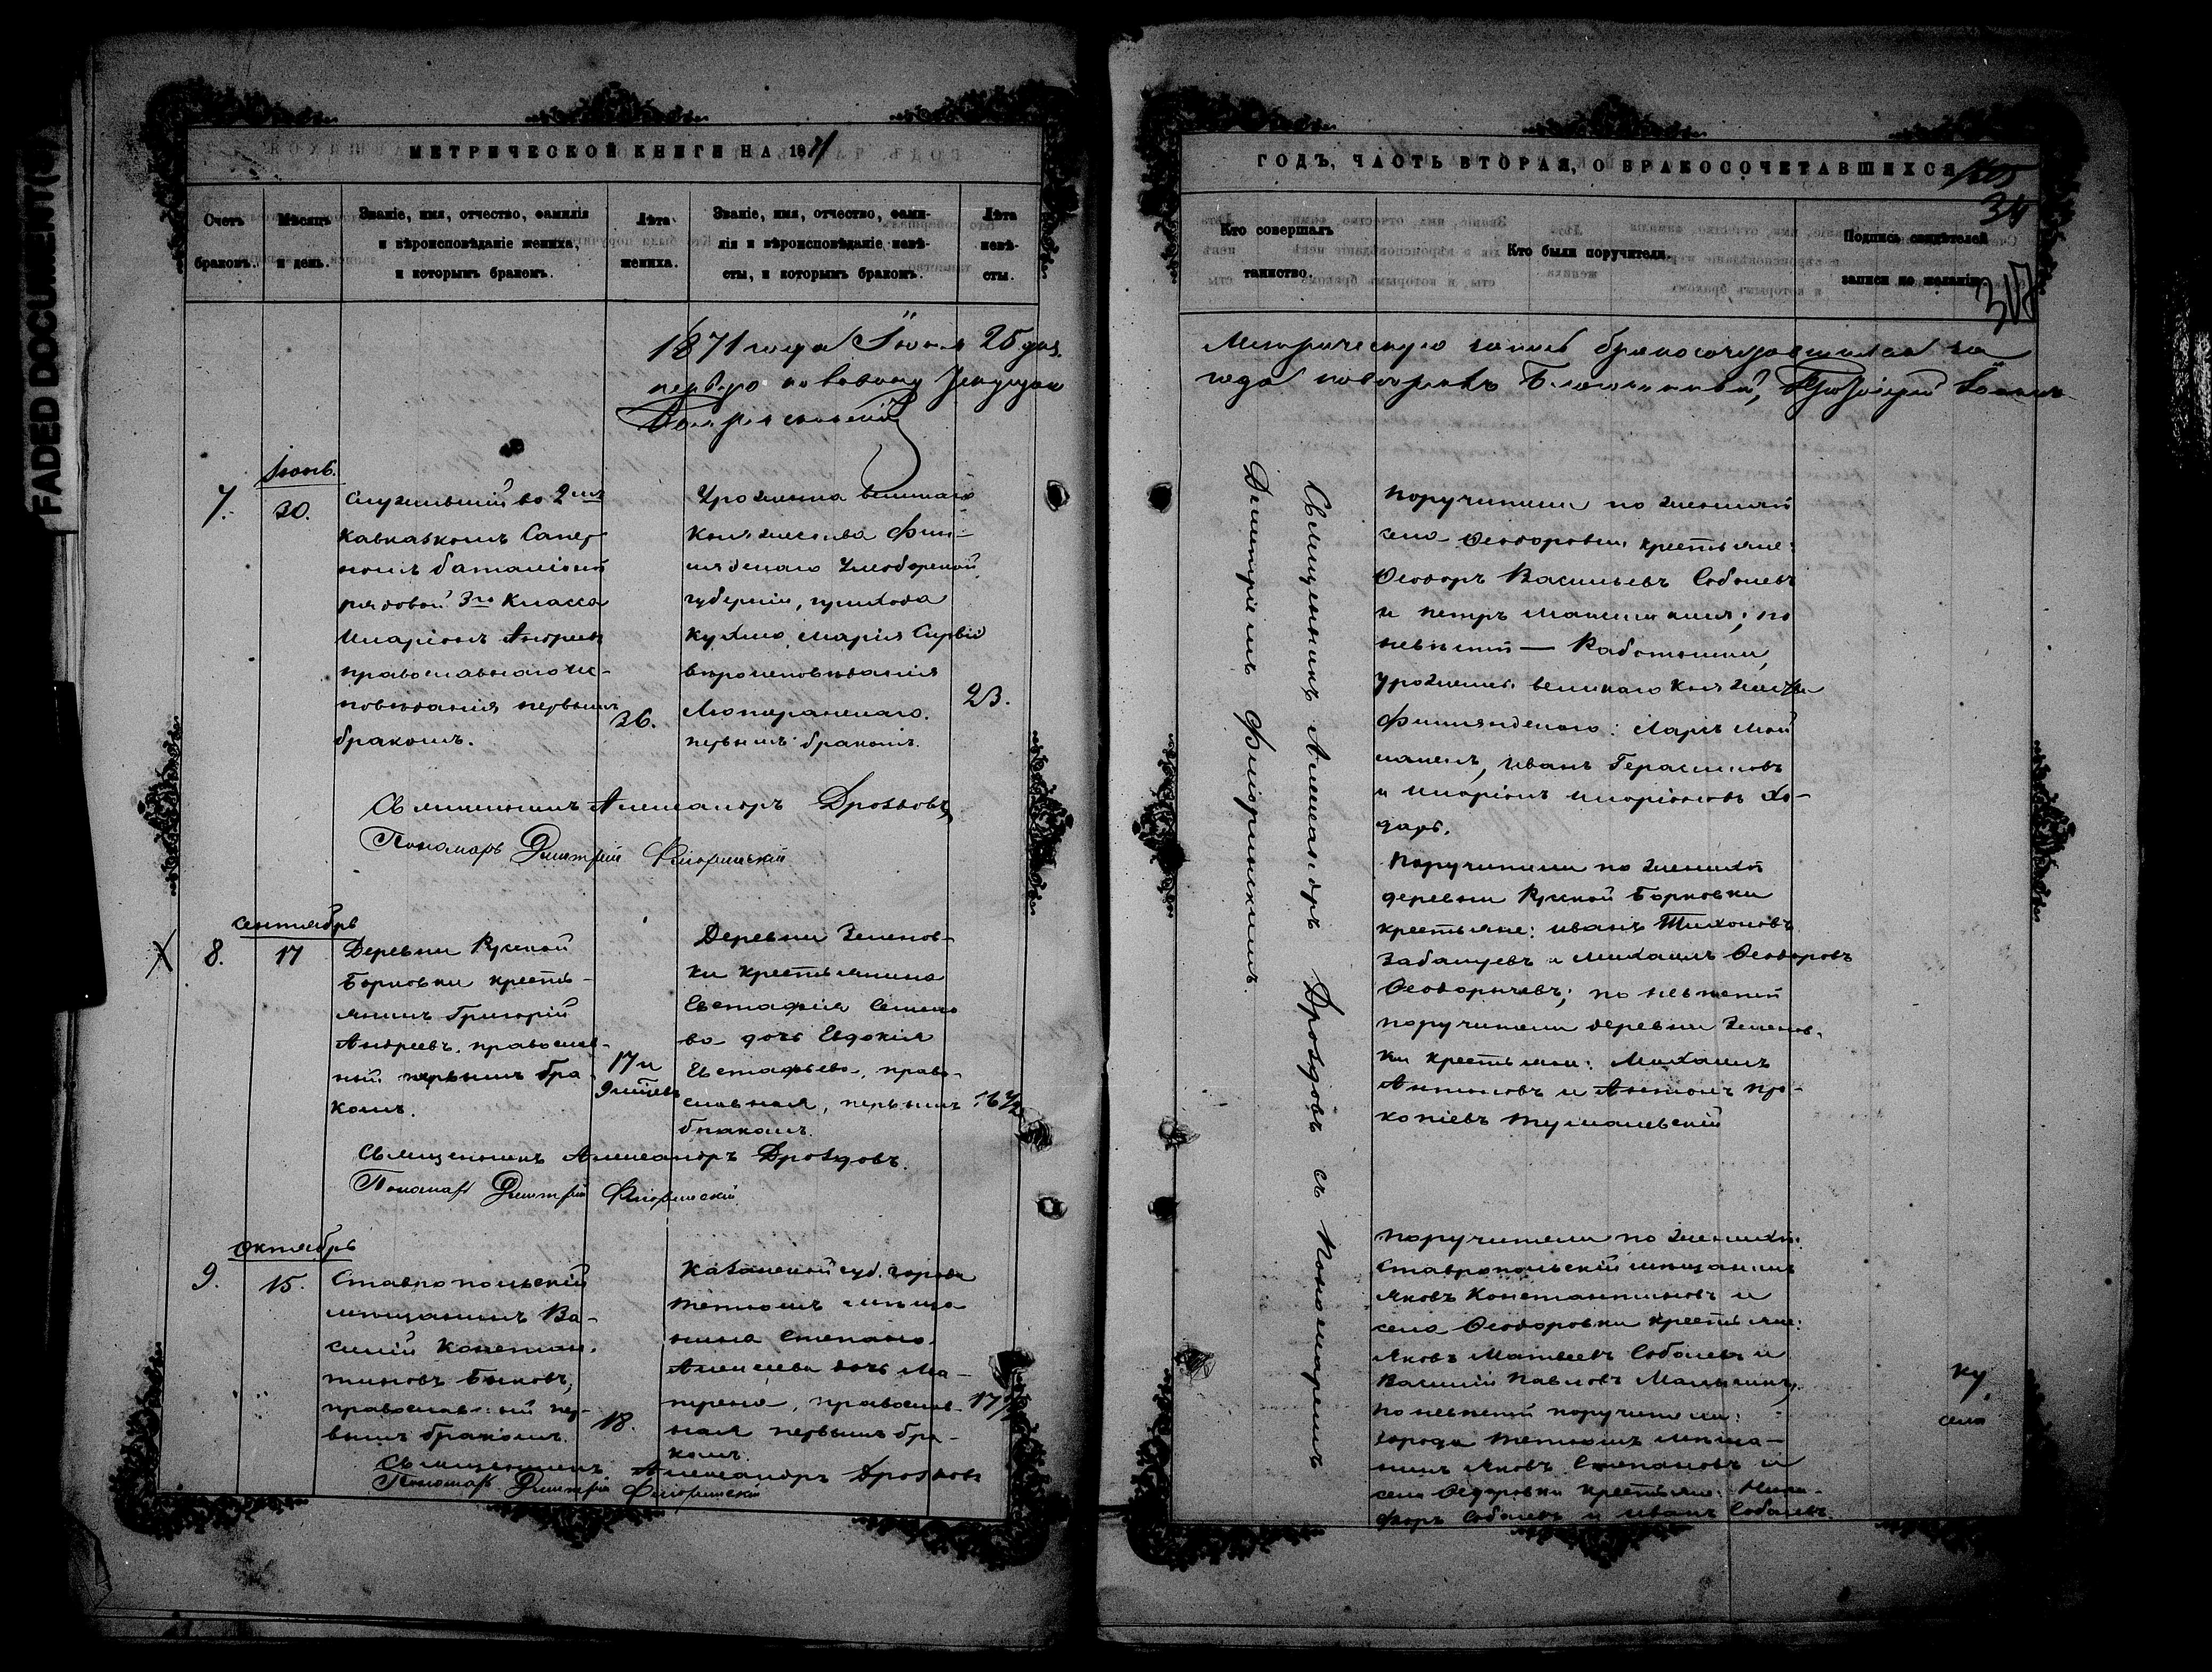 FADED DOCUMENT(S)
МЕТРИЧЕСКОЙ КНИГИ НА 1871
Счетъ браковъ.
Мѣсяцъ и день.
Званіе, имя, отчество, фамилія
и вѣроисповѣданіе жениха,
и которымъ бракомъ.
Лѣта жениха.
Званіе, имя, отчество, фами-
лія и вѣроисповѣданіе невѣ-
сты, и которымъ бракомъ.
Лѣта невѣ-
сты.
1871 года Іюня 25 дня
Іюнь.
7.
30.
Служившій во 2мъ
Кавказкомъ Сапер
номъ баталіонѣ
рядовой 3го класса
Иларіонъ Андреевъ
православнаго ис-
повѣданія первымъ
бракомъ.
36.
Уроженка великаго
Княжества Фин-
ляндскаго Улеоборгской
губерніи, прихода
Кухмо, Марія
вѣроисповѣданія
Лютеранскаго.
первымъ бракомъ.
23.
Священникъ Александръ Дроздовъ
Пономарь Дмитрій Флоринскій
сентябрь
8.
17
Деревни Русской
Борковки кресть-
янинъ Григорій
Андреевъ, православ-
ный первымъ бра-
комъ.
17 и
9 мѣсец.
Деревни Зеленов-
ки крестьянина
Евстафія Семено
ва дочь Евдокія
Евстафьева, право-
славная, первымъ
бракомъ.
16 1/2
Священникъ Александръ Дроздовъ.
Пономарь Дмитрій Флоринскій
октябрь
9.
15.
Ставропольскій
мѣщанинъ Ва-
силій Констан-
тиновъ Быковъ,
православный пер-
вымъ бракомъ.
18.
Казанской губ. города
Тетюшъ мѣща
нина Степана
Алексѣева дочь Ма-
трена, православ-
ная первымъ бра-
комъ.
17
Священникъ Александръ Дроздовъ
Пономарь Дмитрій Флоринскій
ГОДЪ, ЧАСТЬ ВТОРАЯ, О БРАКОСОЧЕТАВШИХСЯ
34
Кто совершалъ
таинство.
Кто были поручители.
Подпись свидѣтелей
записи по желанію
Метрическую запись бракосочетавшихся за
года повѣрялъ Благочинный, Протоіерей
Священникъ Александръ Дроздовъ съ Пономаремъ
Дмитріемъ Флоринскимъ.
Поручители по женихѣ
села Ѳеодоровки крестьяне:
Ѳеодоръ Васильевъ Соболевъ
и Петръ; по
невѣстѣ — Работники,
уроженцы великаго Княжества
Финляндскаго:
Иванъ Герасимовъ
и Иларіонъ Иларіоновъ Хо-
дарь.
Поручители по женихѣ
деревни Русской Борковки
крестьяне: Иванъ Тихоновъ
Забалуевъ и Михаилъ Ѳеодоровъ
Ѳеодорычевъ; по невѣстѣ
поручители деревни Зеленов-
ки крестьяне: Михаилъ
Антоновъ и Антонъ Про-
копіевъ Тумалевскій
поручители по женихѣ:
Ставропольскій мѣщанинъ
Яковъ Константиновъ и
села Ѳеодоровки крестьяне:
Яковъ Матвеевъ Соболевъ и
Василій Павловъ Малышкинъ,
по невѣстѣ поручители:
города Тетюшъ мѣща-
нинъ Яковъ Степановъ и
села Ѳедоровки крестьяне: Ники-
форъ Соболевъ и Иванъ Соболевъ.